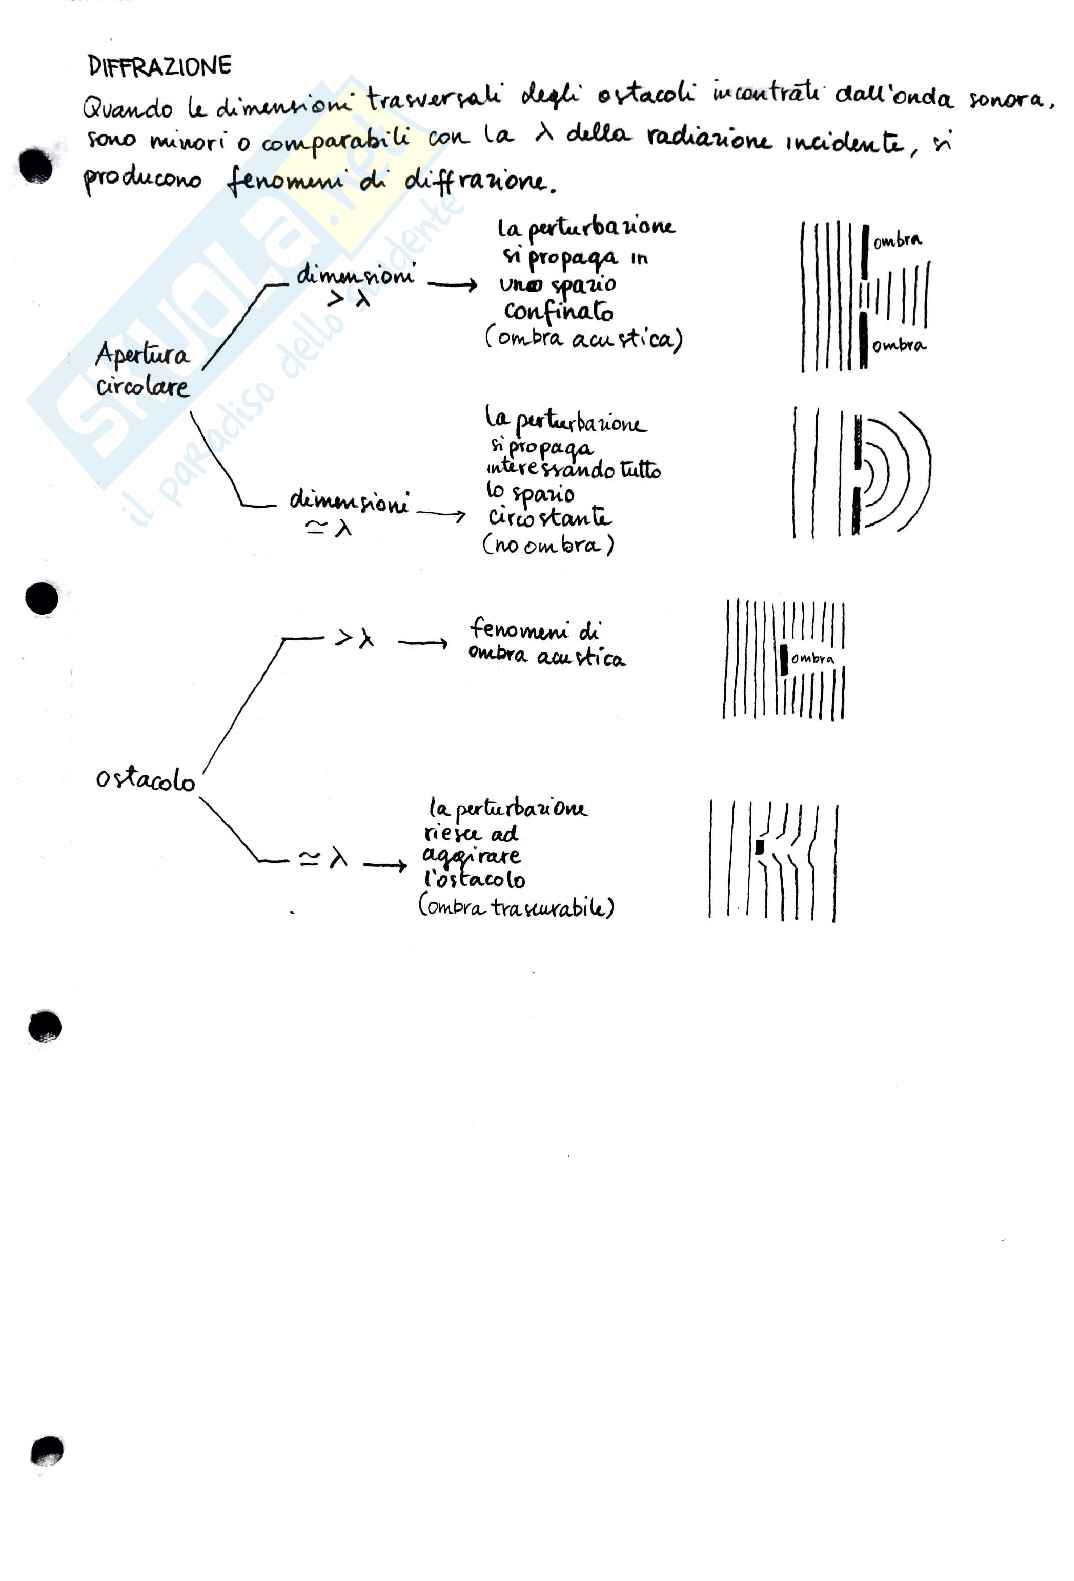 DIFFRAZIONE
Quando le dimensioni trasversali degli ostacoli incontrati dall'onda sonora,
sono minori o comparabili con la λ della radiazione incidente, si
producono fenomeni di diffrazione.
Apertura
circolare
dimensioni
> λ
la perturbazione
si propaga in
uno spazio
confinato
(ombra acustica)
ombra
ombra
dimensioni
≃ λ
la perturbazione
si propaga
interessando tutto
lo spazio
circostante
(no ombra)
ostacolo
> λ
fenomeni di
ombra acustica
ombra
≃ λ
la perturbazione
riesce ad
aggirare
l'ostacolo
(ombra trascurabile)
SKUOLA.net
il paradiso dello studente